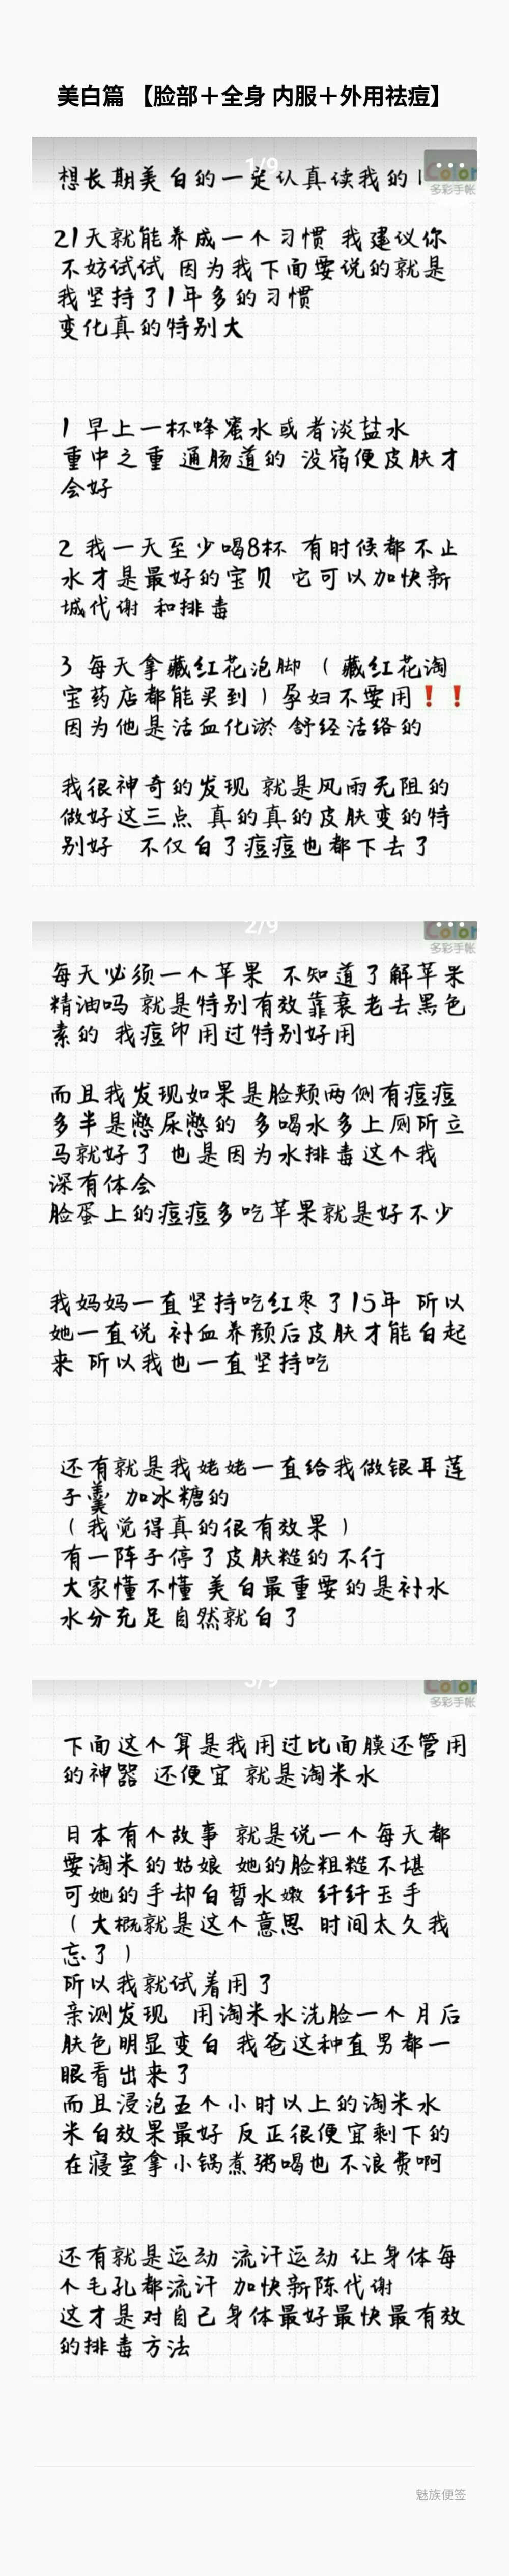 美白篇 【脸部＋全身 内服＋外用祛痘】
1/9
Color
多彩手帐
想长期美白的一定认真读我的
21天就能养成一个习惯 我建议你
不妨试试 因为我下面要说的就是
我坚持了1年多的习惯
变化真的特别大
1 早上一杯蜂蜜水或者淡盐水
重中之重 通肠道的 没宿便皮肤才
会好
2 我一天至少喝8杯 有时候都不止
水才是最好的宝贝 它可以加快新
城代谢 和排毒
3 每天拿藏红花泡脚 （藏红花淘
宝药店都能买到）孕妇不要用❗❗
因为他是活血化淤 舒经活络的
我很神奇的发现 就是风雨无阻的
做好这三点 真的真的皮肤变的特
别好 不仅白了痘痘也都下去了
2/9
Color
多彩手帐
每天必须一个苹果 不知道了解苹果
精油吗 就是特别有效靠衰老去黑色
素的 我痘印用过特别好用
而且我发现如果是脸颊两侧有痘痘
多半是憋尿憋的 多喝水多上厕所立
马就好了 也是因为水排毒这个我
深有体会
脸蛋上的痘痘多吃苹果就是好不少
我妈妈一直坚持吃红枣了15年 所以
她一直说 补血养颜后皮肤才能白起
来 所以我也一直坚持吃
还有就是我姥姥一直给我做银耳莲
子羹 加冰糖的
（我觉得真的很有效果）
有一阵子停了皮肤糙的不行
大家懂不懂 美白最重要的是补水
水分充足自然就白了
3/9
Color
多彩手帐
下面这个算是我用过比面膜还管用
的神器 还便宜 就是淘米水
日本有个故事 就是说一个每天都
要淘米的姑娘 她的脸粗糙不堪
可她的手却白皙水嫩 纤纤玉手
（大概就是这个意思 时间太久我
忘了）
所以我就试着用了
亲测发现 用淘米水洗脸一个月后
肤色明显变白 我爸这种直男都一
眼看出来了
而且浸泡五个小时以上的淘米水
米白效果最好 反正很便宜剩下的
在寝室拿小锅煮粥喝也不浪费啊
还有就是运动 流汗运动 让身体每
个毛孔都流汗 加快新陈代谢
这才是对自己身体最好最快最有效
的排毒方法
魅族便签